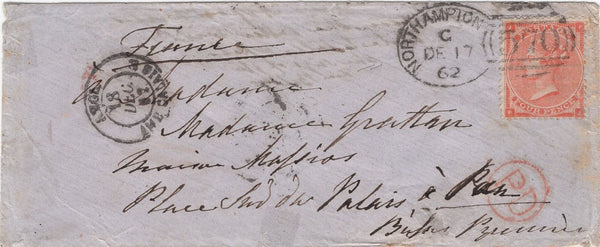 France
NORTHAMPTON
C
DE 17
62
570
FOUR PENCE
18
DEC
62
a Madame
Madame Grattan
Maison Massios
Place Sud du Palais à Pau
Basses Pyrénées
PD